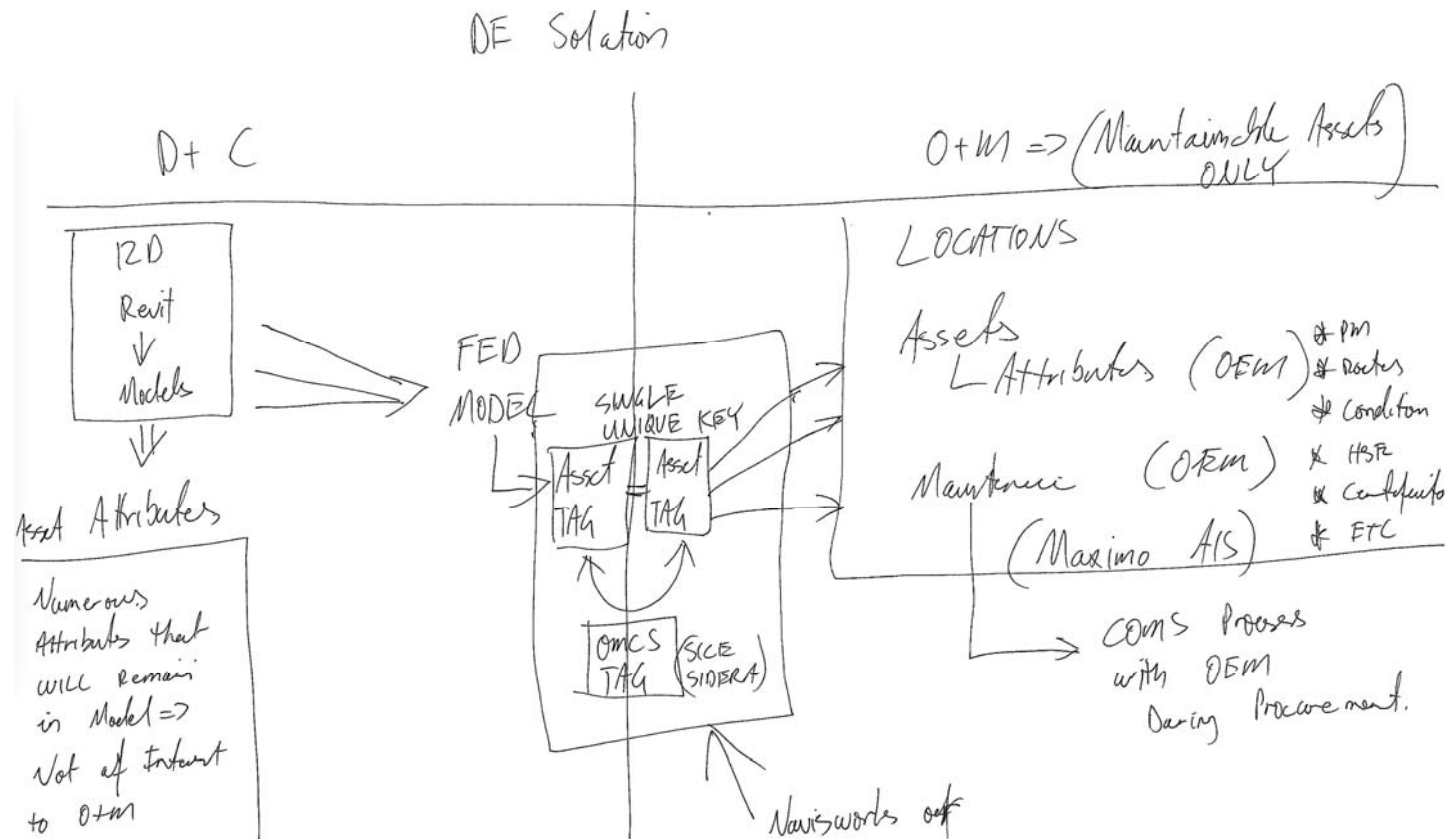 DE Solation
D+ C
O+M => (Maintainable Assets
ONLY)
12D
Revit
Models
Asset Attributes
Numerous
Attributes that
WILL Remain
in Model =>
Not of Interest
to O+M
FED
MODEL
SINGLE
UNIQUE KEY
Asset
TAG
=
Asset
TAG
OMCS
TAG
(SICE
SIDERA)
Navisworks
LOCATIONS
Assets
Attributes (OEM)
* PM
* Routes
* Condition
* HSE
*
* ETC
Maintenance (OEM)
(Maximo AIS)
COMS Process
with OEM
During Procurement.